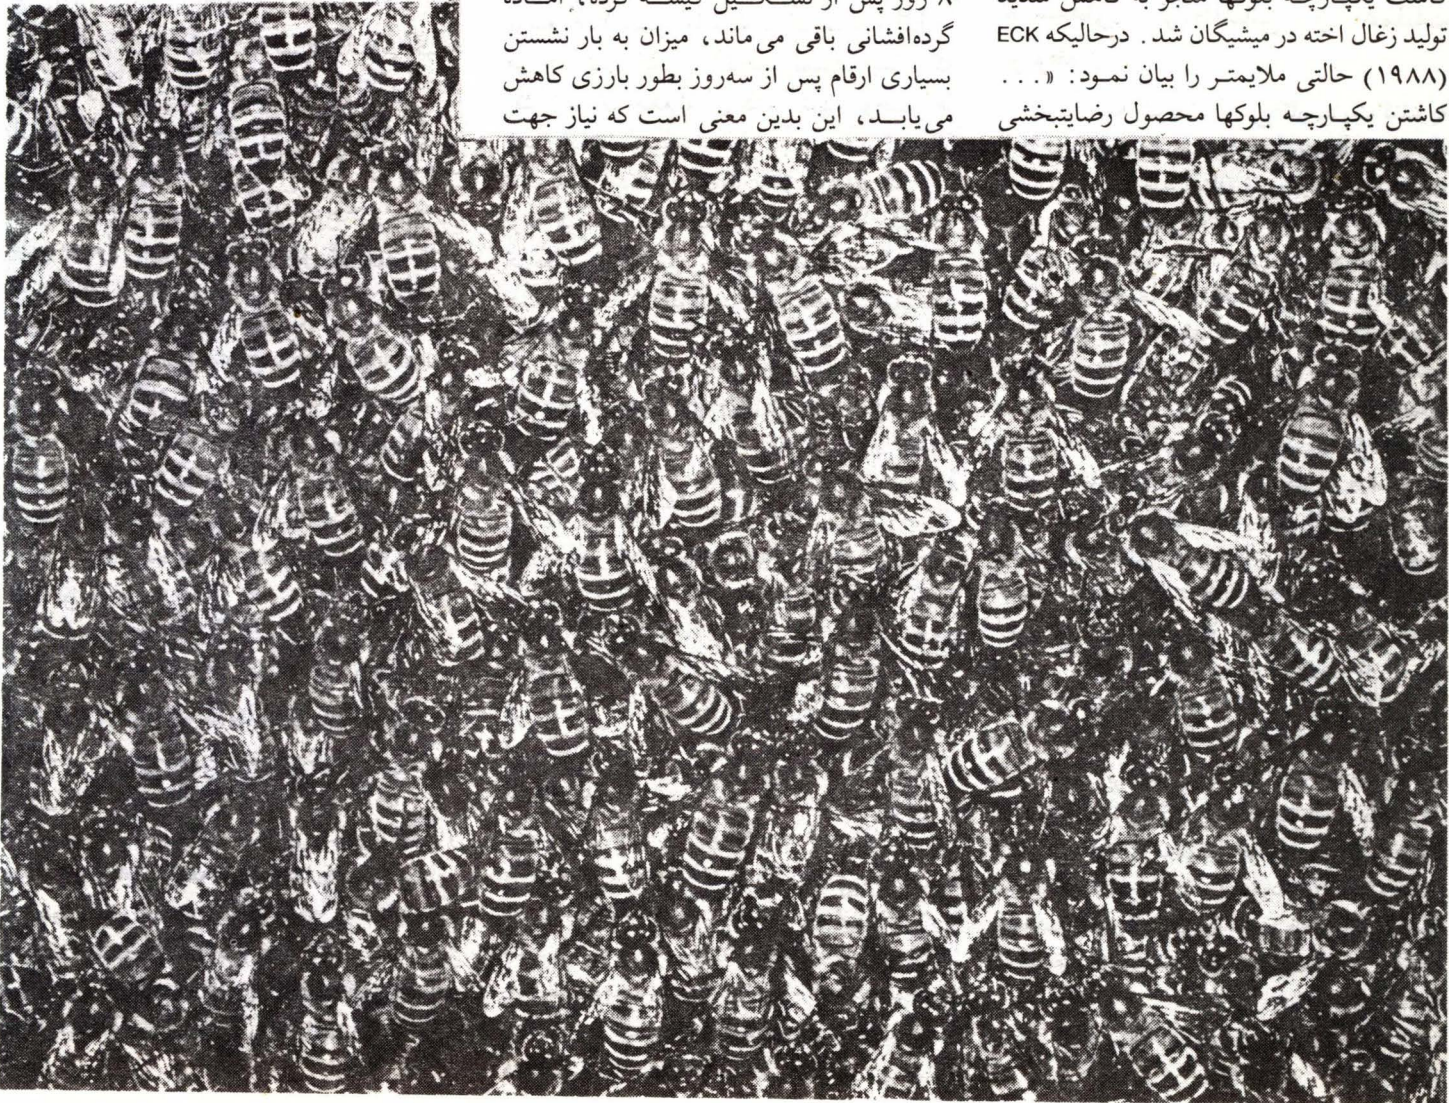 کاشت یکپارچه بلوکها منجر به کاهش شدید
تولید زغال اخته در میشیگان شد. درحالیکه ECK
(۱۹۸۸) حالتی ملایمتر را بیان نمود: «...
کاشتن یکپارچه بلوکها محصول رضایتبخشی
۸ روز پس از
گرده‌افشانی باقی می‌ماند، میزان به بار نشستن
بسیاری ارقام پس از سه‌روز بطور بارزی کاهش
می‌یابد، این بدین معنی است که نیاز جهت